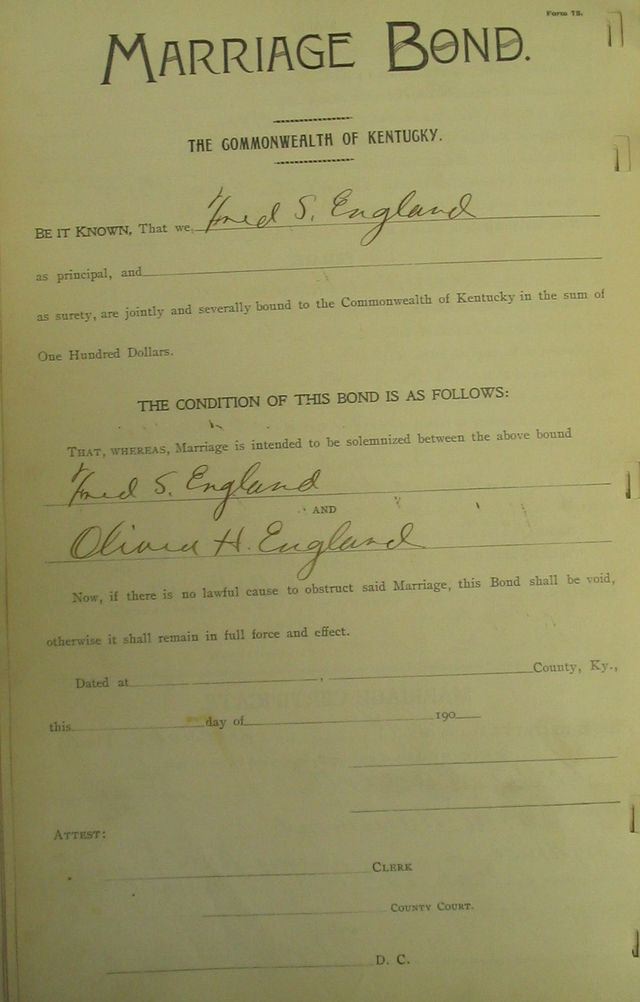 Form 78.
MARRIAGE BOND.
THE COMMONWEALTH OF KENTUCKY.
BE IT KNOWN, That we, Fred S. England
as principal, and
as surety, are jointly and severally bound to the Commonwealth of Kentucky in the sum of
One Hundred Dollars.
THE CONDITION OF THIS BOND IS AS FOLLOWS:
THAT, WHEREAS, Marriage is intended to be solemnized between the above bound
Fred S. England
AND
Olivia H. England
Now, if there is no lawful cause to obstruct said Marriage, this Bond shall be void,
otherwise it shall remain in full force and effect.
Dated at , County, Ky.,
this day of 190
ATTEST:
CLERK
COUNTY COURT.
D. C.